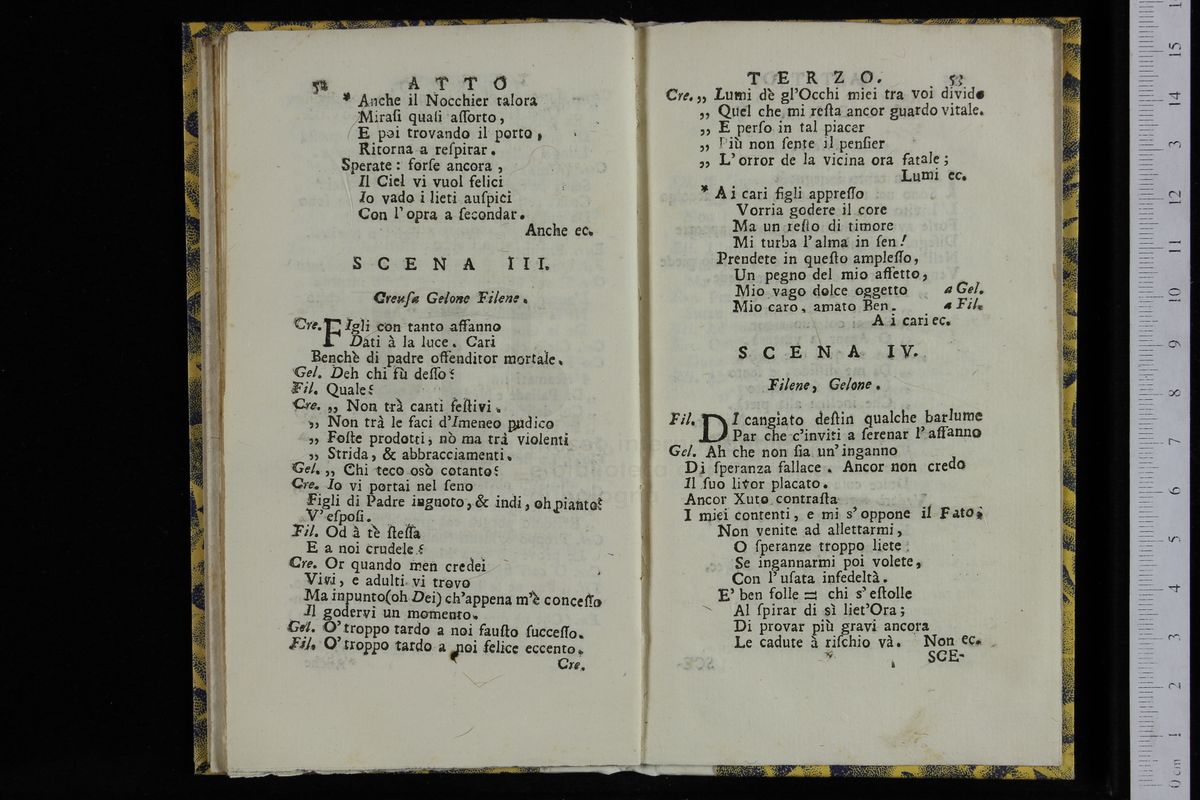 52 ATTO
* Anche il Nocchier talora
Miraſi quaſi aſſorto,
E poi trovando il porto,
Ritorna a reſpirar.
Sperate: forſe ancora,
Il Ciel vi vuol felici
Io vado i lieti auſpici
Con l'opra a ſecondar.
Anche ec.
SCENA III.
Creuſa Gelone Filene.
Cre. FIgli con tanto affanno
Dati à la luce. Cari
Benchè di padre offenditor mortale.
Gel. Deh chi fù deſſo?
Fil. Quale?
Cre. „ Non trà canti feſtivi.
„ Non trà le faci d'Imeneo pudico
„ Foſte prodotti, nò ma trà violenti
„ Strida, & abbracciamenti.
Gel. „ Chi teco osò cotanto?
Cre. Io vi portai nel ſeno
Figli di Padre ingnoto, & indi, oh pianto?
V'eſpoſi.
Fil. Od à tè ſteſſa
E a noi crudele?
Cre. Or quando men credei
Vivi, e adulti vi trovo
Ma inpunto(oh Dei) ch'appena m'è conceſſo
Il godervi un momento.
Gel. O' troppo tardo a noi fauſto ſucceſſo.
Fil. O' troppo tardo a noi felice eccento.
Cre.
TERZO. 53
Cre. „ Lumi dè gl'Occhi miei tra voi divido
„ Quel che mi reſta ancor guardo vitale.
„ E perſo in tal piacer
„ Più non ſente il penſier
„ L'orror de la vicina ora fatale;
Lumi ec.
* A i cari figli appreſſo
Vorria godere il core
Ma un reſto di timore
Mi turba l'alma in ſen!
Prendete in queſto ampleſſo,
Un pegno del mio affetto,
Mio vago dolce oggetto a Gel.
Mio caro, amato Ben. a Fil.
A i cari ec.
SCENA IV.
Filene, Gelone.
Fil. DI cangiato deſtin qualche barlume
Par che c'inviti a ſerenar l'affanno
Gel. Ah che non ſia un'inganno
Di ſperanza fallace. Ancor non credo
Il ſuo livor placato.
Ancor Xuto contraſta
I miei contenti, e mi s'oppone il Fato;
Non venite ad allettarmi,
O ſperanze troppo liete
Se ingannarmi poi volete,
Con l'uſata infedeltà.
E' ben folle = chi s'eſtolle
Al ſpirar di sì liet'Ora;
Di provar più gravi ancora
Le cadute à riſchio và. Non ec.
SCE-